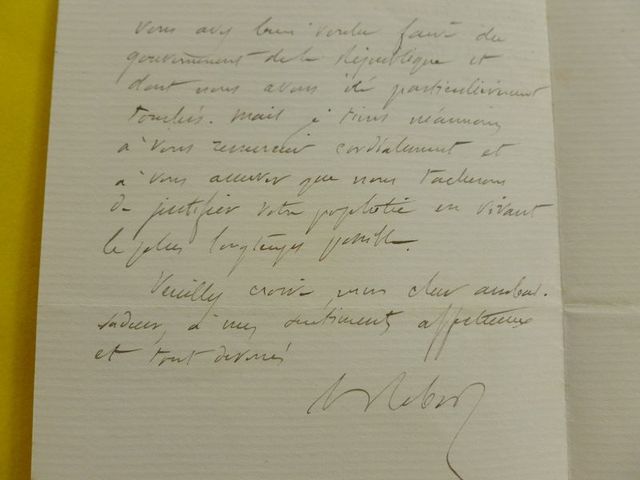 vous avez bien voulu faire du
gouvernement de la République et
dont nous avons été particulièrement
touchés. Mais je tiens néanmoins
à vous remercier cordialement et
à vous assurer que nous tacherons
de justifier votre prophétie en vivant
le plus longtemps possible.
Veuillez croire, mon cher ambas-
sadeur, à mes sentiments affectueux
et tout dévoués